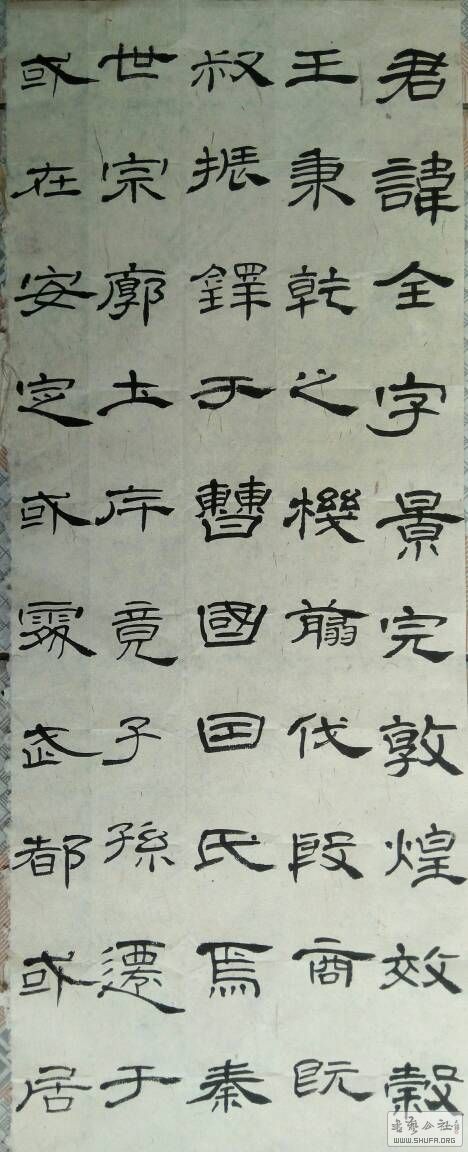 君諱全字景完敦煌效穀
王秉乾之機翦伐殷商既
叔振鐸于曹國因氏焉秦
世宗廓土斥竟子孫遷于
或在安定或處武都或居
书艺公社
WWW.SHUFA.ORG